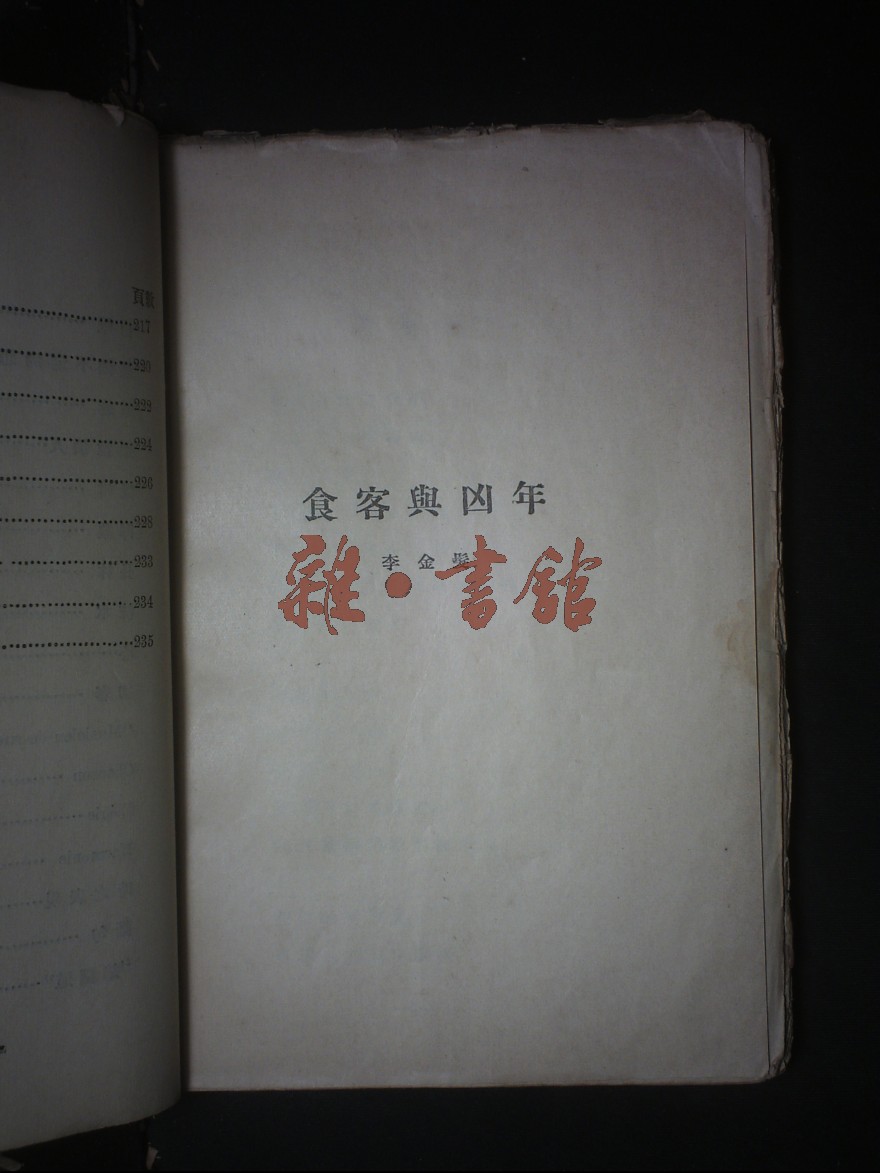 頁數
217
220
222
224
226
228
233
234
235
食客與凶年
李金髮
雜·書館